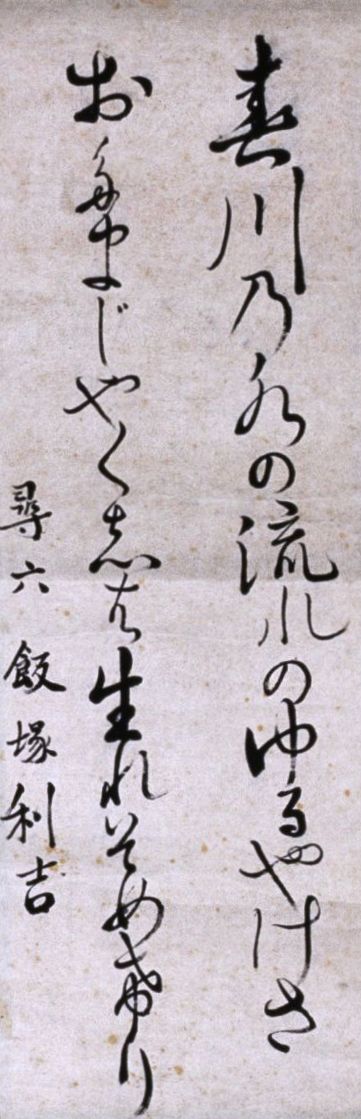 春川乃水の流れのゆるやけさ
お多まじやくし者生れそめけり
尋六 飯塚利吉